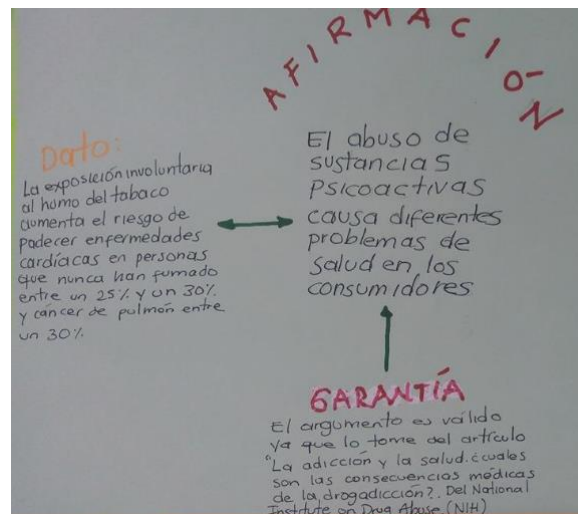 AFIRMACIÓN
Dato:
La exposición involuntaria
al humo del tabaco
aumenta el riesgo de
padecer enfermedades
cardíacas en personas
que nunca han fumado
entre un 25% y un 30%
y cáncer de pulmón entre
un 30%
El abuso de
sustancias
psicoactivas
causa diferentes
problemas de
salud en los
consumidores
GARANTÍA
El argumento es válido
ya que lo tome del artículo
"La adicción y la salud. ¿cuales
son las consecuencias médicas
de la drogadicción?. Del National
Institute on Drug Abuse (NIH)